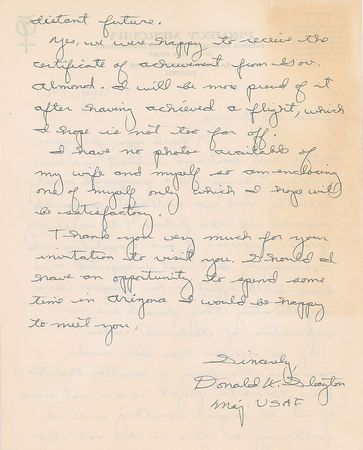 distant future.
Yes, we were happy to receive the
certificate of achievement from Gov.
Almond. I will be more proud of it
after having achieved a flight, which
I hope is not too far off.
I have no photos available of
my wife and myself so am enclosing
one of myself only which I hope will
be satisfactory.
Thank you very much for your
invitation to visit you. Should I
have an opportunity to spend some
time in Arizona I would be happy
to meet you.
Sincerely,
Donald K. Slayton
Maj. USAF